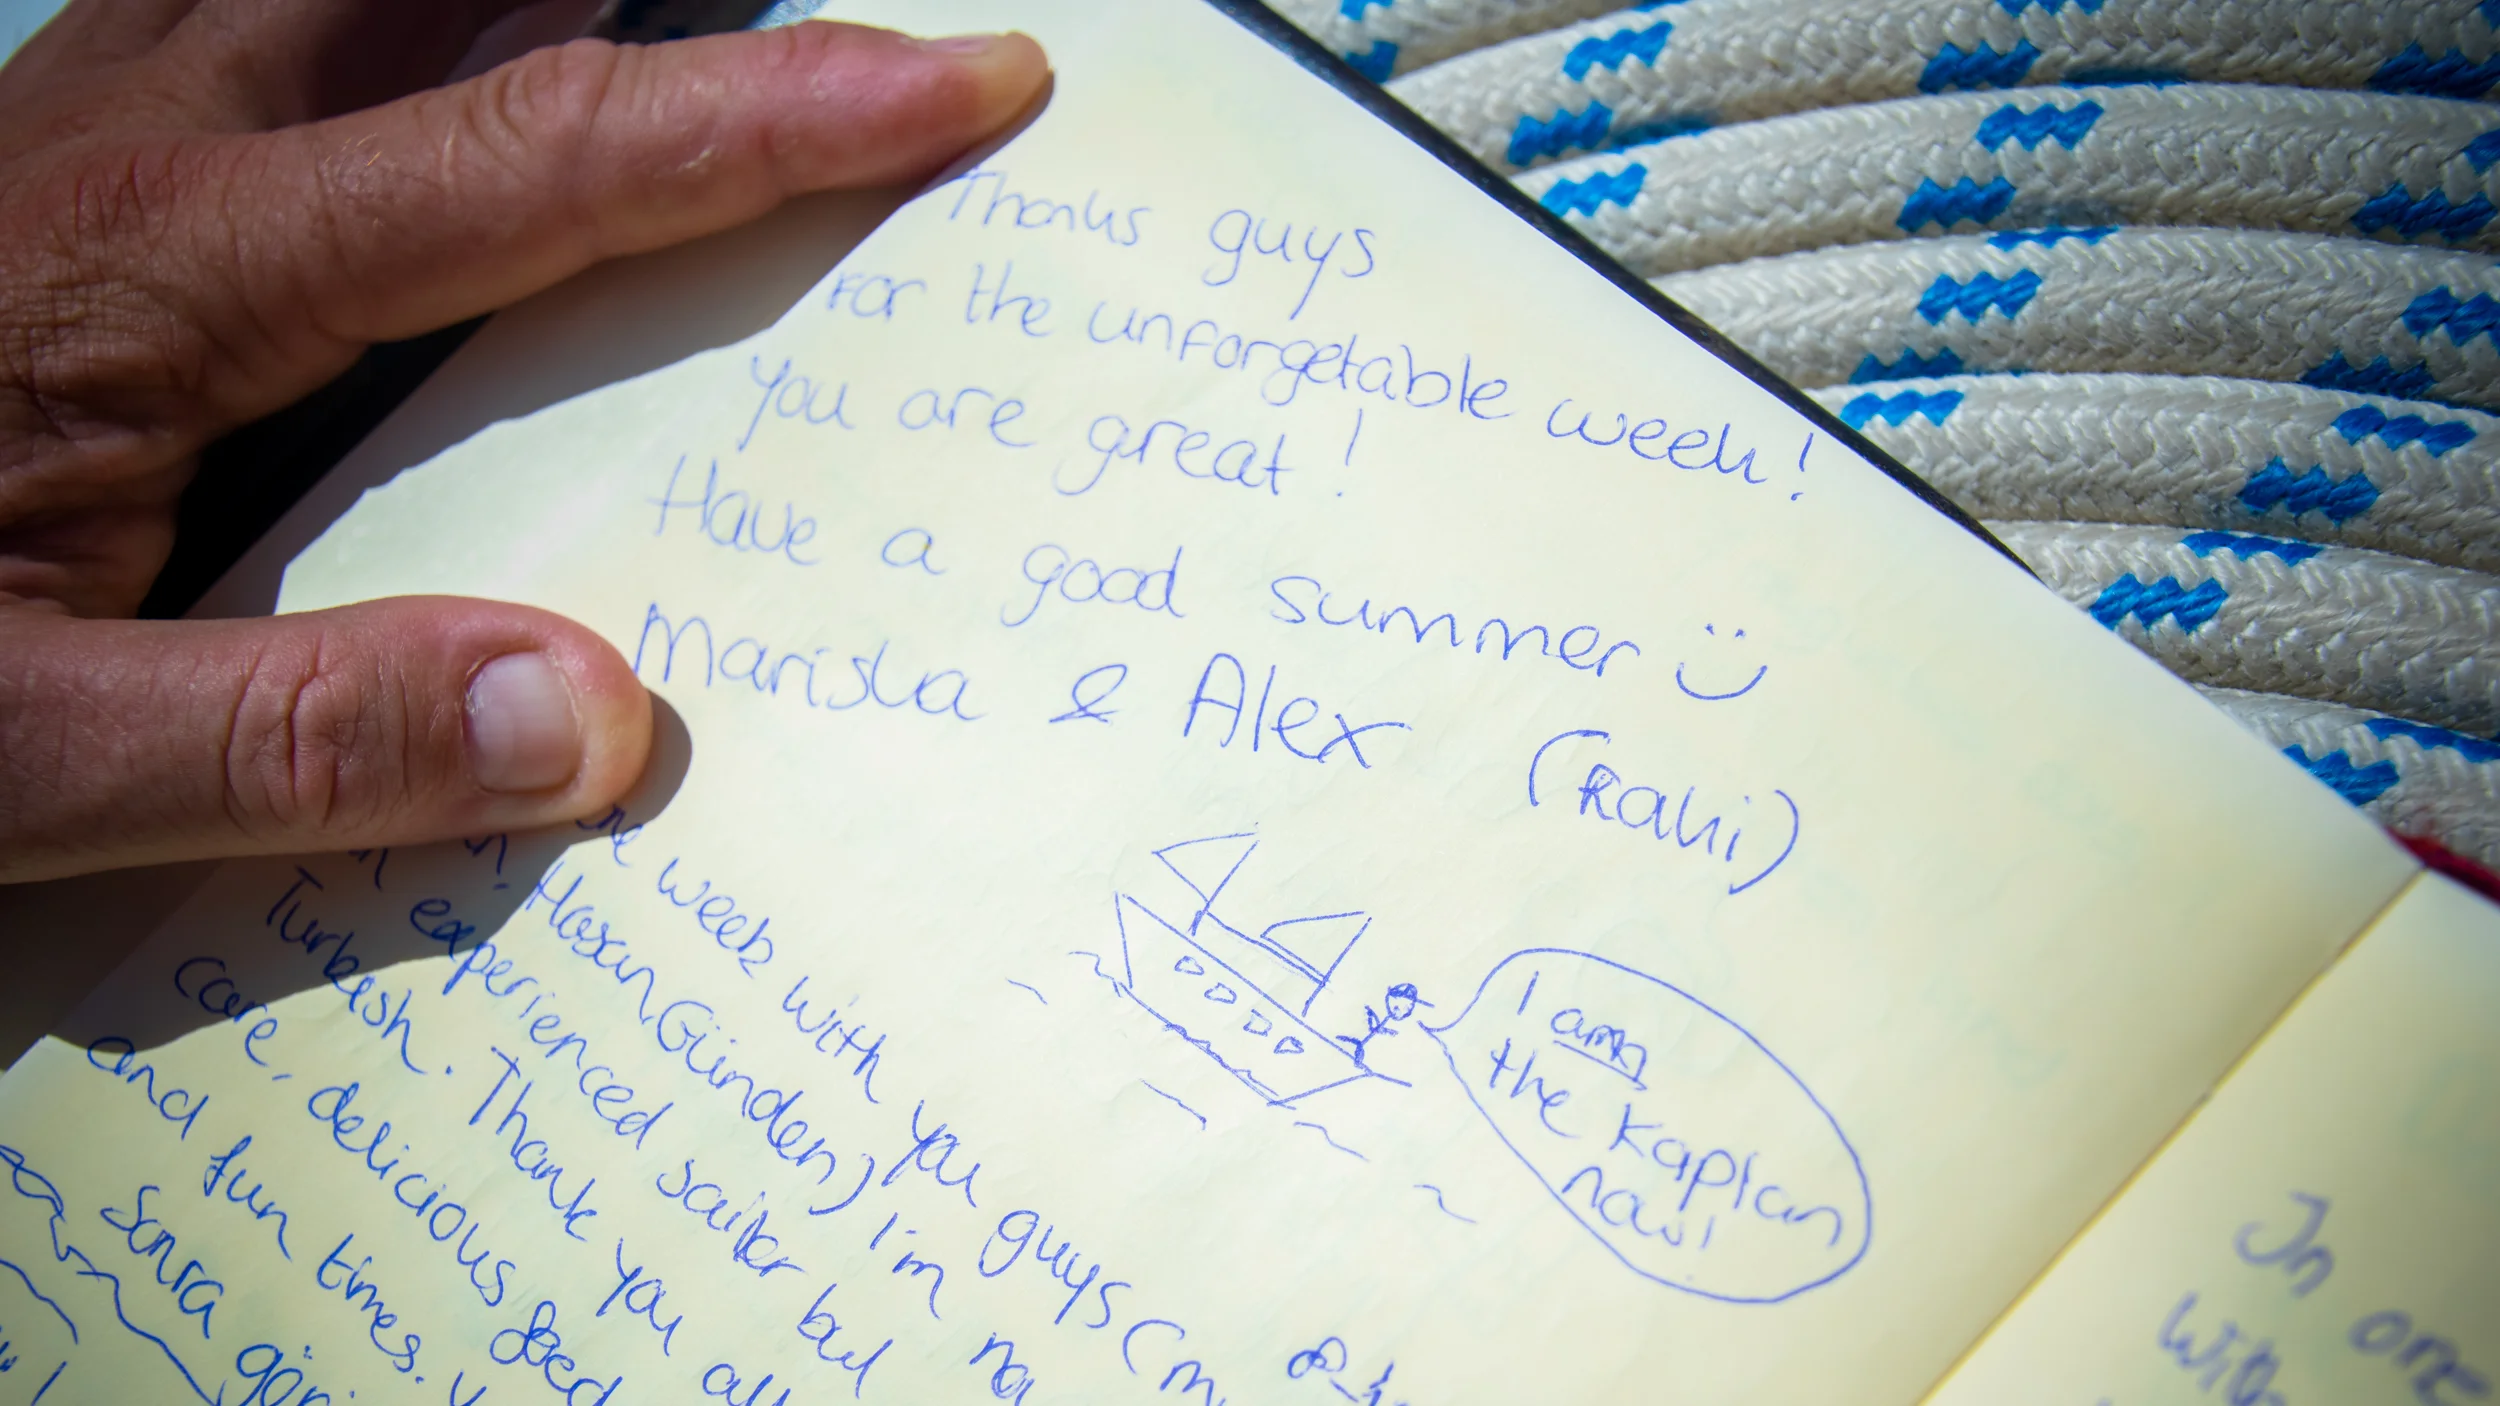 Thanks guys
For the unforgetable week!
You are great!
Have a good summer :)
Mariska & Alex (Raki)
I am
the Kaplan
now!
week with you guys (m
Hasan, Günden) I'm no
experienced sailer but
Turkish. Thank you all
care, delicious food
and fun times.
Sonra gör
In one
With